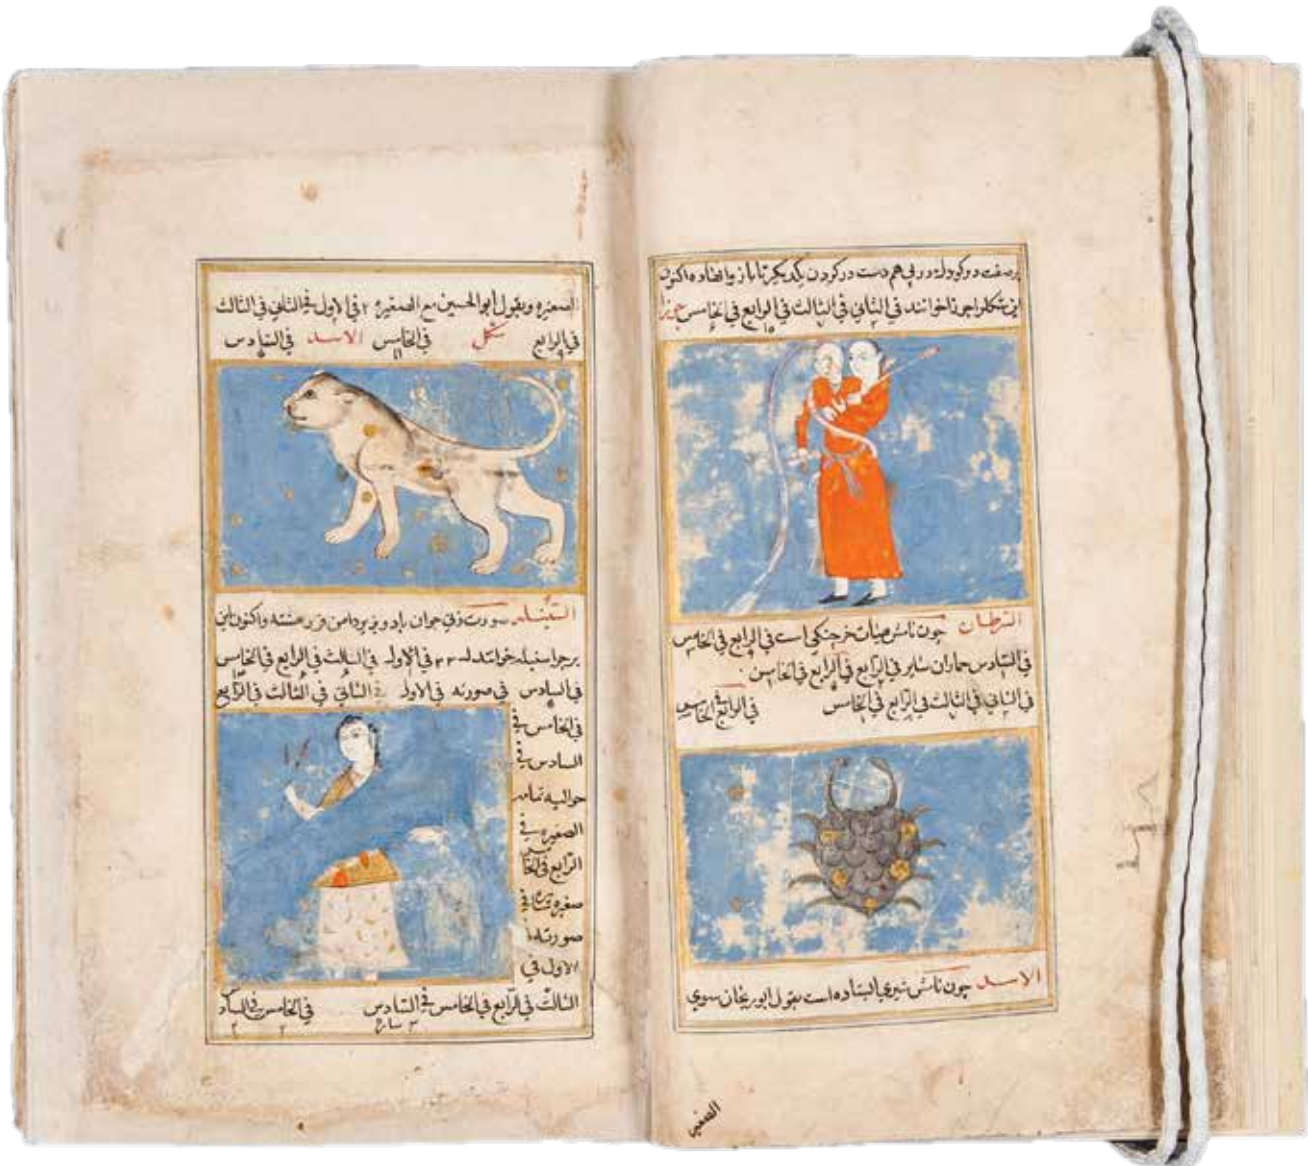 بر صفت دو کودک در پی هم دست در کردن یکدیگر تا باز وانهاده اکنون
این شکل را جوزا خوانند فی الثانی فی الثالث فی الرابع فی الخامس جوزا
السرطان چون نامش میات خرچنکی است فی الرابع فی الخامس
فی السادس حماران فی الرابع فی الرابع فی الخامس
فی الثانی فی الثالث فی الرابع فی الخامس فی الرابع الخامس
الاسد چون نامش شیری ایستاده است بقول ابو ریحان سوی
الصغیره
الصغیره ویقول ابو الحسین مع الصغیره ۲ فی الاول فی الثانی فی الثالث
فی الرابع شکل فی الخامس الاسد فی السادس
السنبله صورت زنی جوان با دو پر دامن فرو هشته واکنون این
برج را سنبله خوانند فی الاول فی الثالث فی الرابع فی الخامس
فی السادس فی صورته فی الاول فی الثانی فی الثالث فی الرابع
فی الخامس فی
السادس فی
حوالیه
الصغیره فی
الرابع فی
صغیره فی
صورته
الاول فی
الثالث فی الرابع فی الخامس فی السادس فی الخامس